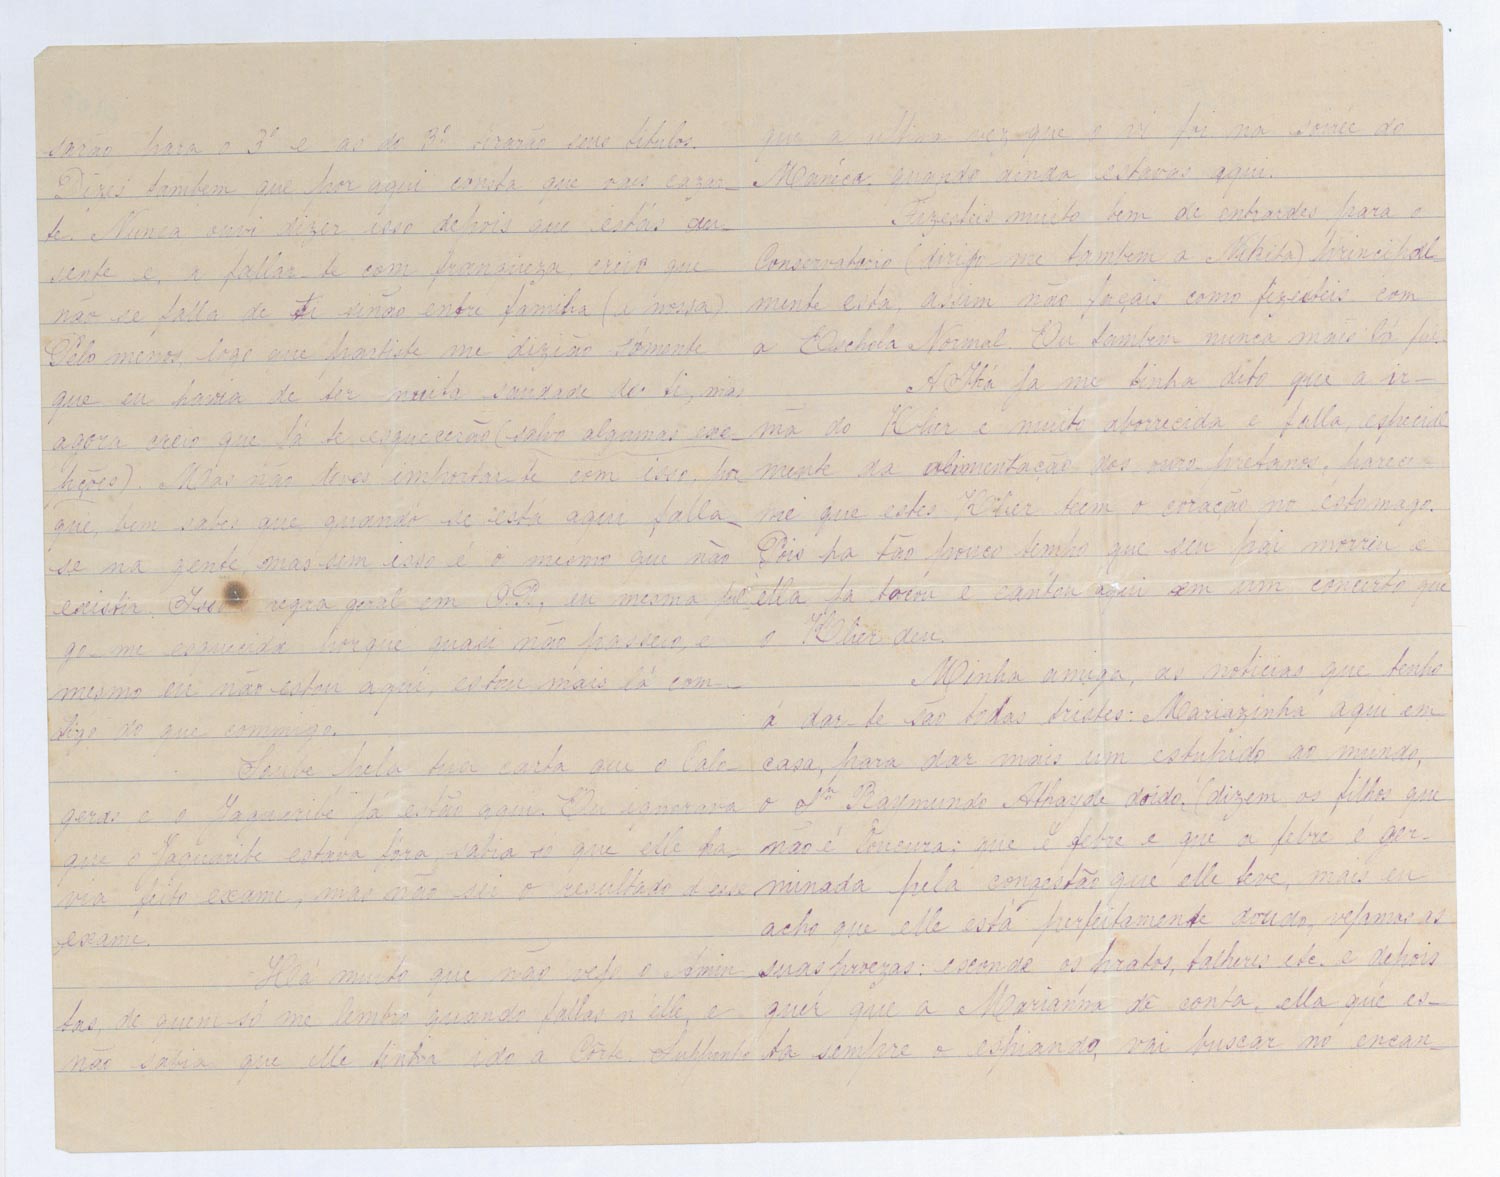 sarão para o 3º e as do 3º tirarão seus titulos.
Dizes tambem que por aqui consta que vaes cazar-
te. Nunca ouvi dizer isso depois que estás au-
sente e, a fallar-te com franqueza, creio que
não se falla de ti sinão entre familia (a nossa).
Pelo menos, logo que partiste me dizião sómente
que eu havia de ter muita saudade de ti, mas
agora creio que já te esquecerão (salvo algumas exce-
pções). Mas não deves importar-te com isso, por
que, bem sabes que quando se está aqui falla-
se na gente, mas sem isso é o mesmo que não
existia. Isso regra geral em O.P., eu mesma jul
go-me esquecida porque quasi não passeio, e
mesmo eu não estou aqui, estou mais lá com-
tigo do que commigo.
Soube pela tua carta que o Calo-
geras e o Jaguaribe já estão aqui. Eu ignorava
que o Jaguaribe estava fóra, sabia só que elle ha-
via feito exame, mas não sei o resultado d'esse
exame.
Há muito que não vejo o Amin
tas, de quem só me lembro quando fallas n'elle, e
não sabia que elle tinha ido a Côrte. Supponho
que a ultima vez que o vi foi na soirée do
Manéca, quando ainda estavas aqui.
Fizesteis muito bem de entrardes para o
Conservatorio (dirijo-me tambem a Nhita) principal-
mente esta, assim não façais como fizesteis com
a Eschola Normal. Eu tambem nunca mais lá fui.
A já me tinha dito que a ir-
mã do Klier é muito aborrecida e falla, especial
mente da alimentação dos ouro pretanos, parece-
me que estes Klier teem o coração no estomago.
Pois ha tão pouco tempo que seu pai morreu e
ella já tocou e cantou aqui em um concerto que
o Klier deu.
Minha amiga, as noticias que tenho
á dar-te são todas tristes: Mariazinha aqui em
casa, para dar mais um estupido ao mundo,
o Snr Raymundo Athayde doido! (dizem os filhos que
não é loucura: que é febre e que a febre é ger-
minada pela congestão que elle teve, mais eu
acho que elle está perfeitamente doudo, vejamos as
suas proezas: esconde os pratos, talheres etc. e depois
quer que a Marianna dê conta, ella que es-
ta sempre o espiando, vai buscar no encan-